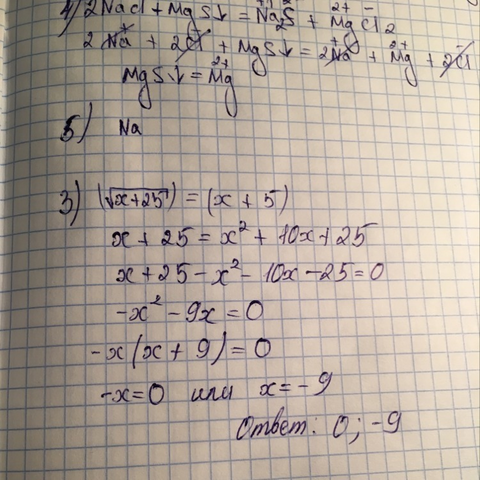 4) 2NaCl + MgS↓ = Na₂S + MgCl₂
2Na + 2Cl + MgS↓ = 2Na + Mg + 2Cl
MgS↓ = Mg
5) Na
3) (√x+25) = (x + 5)
x + 25 = x² + 10x + 25
x + 25 - x² - 10x - 25 = 0
-x² - 9x = 0
-x(x + 9) = 0
-x = 0 или x = -9
Ответ: 0; -9